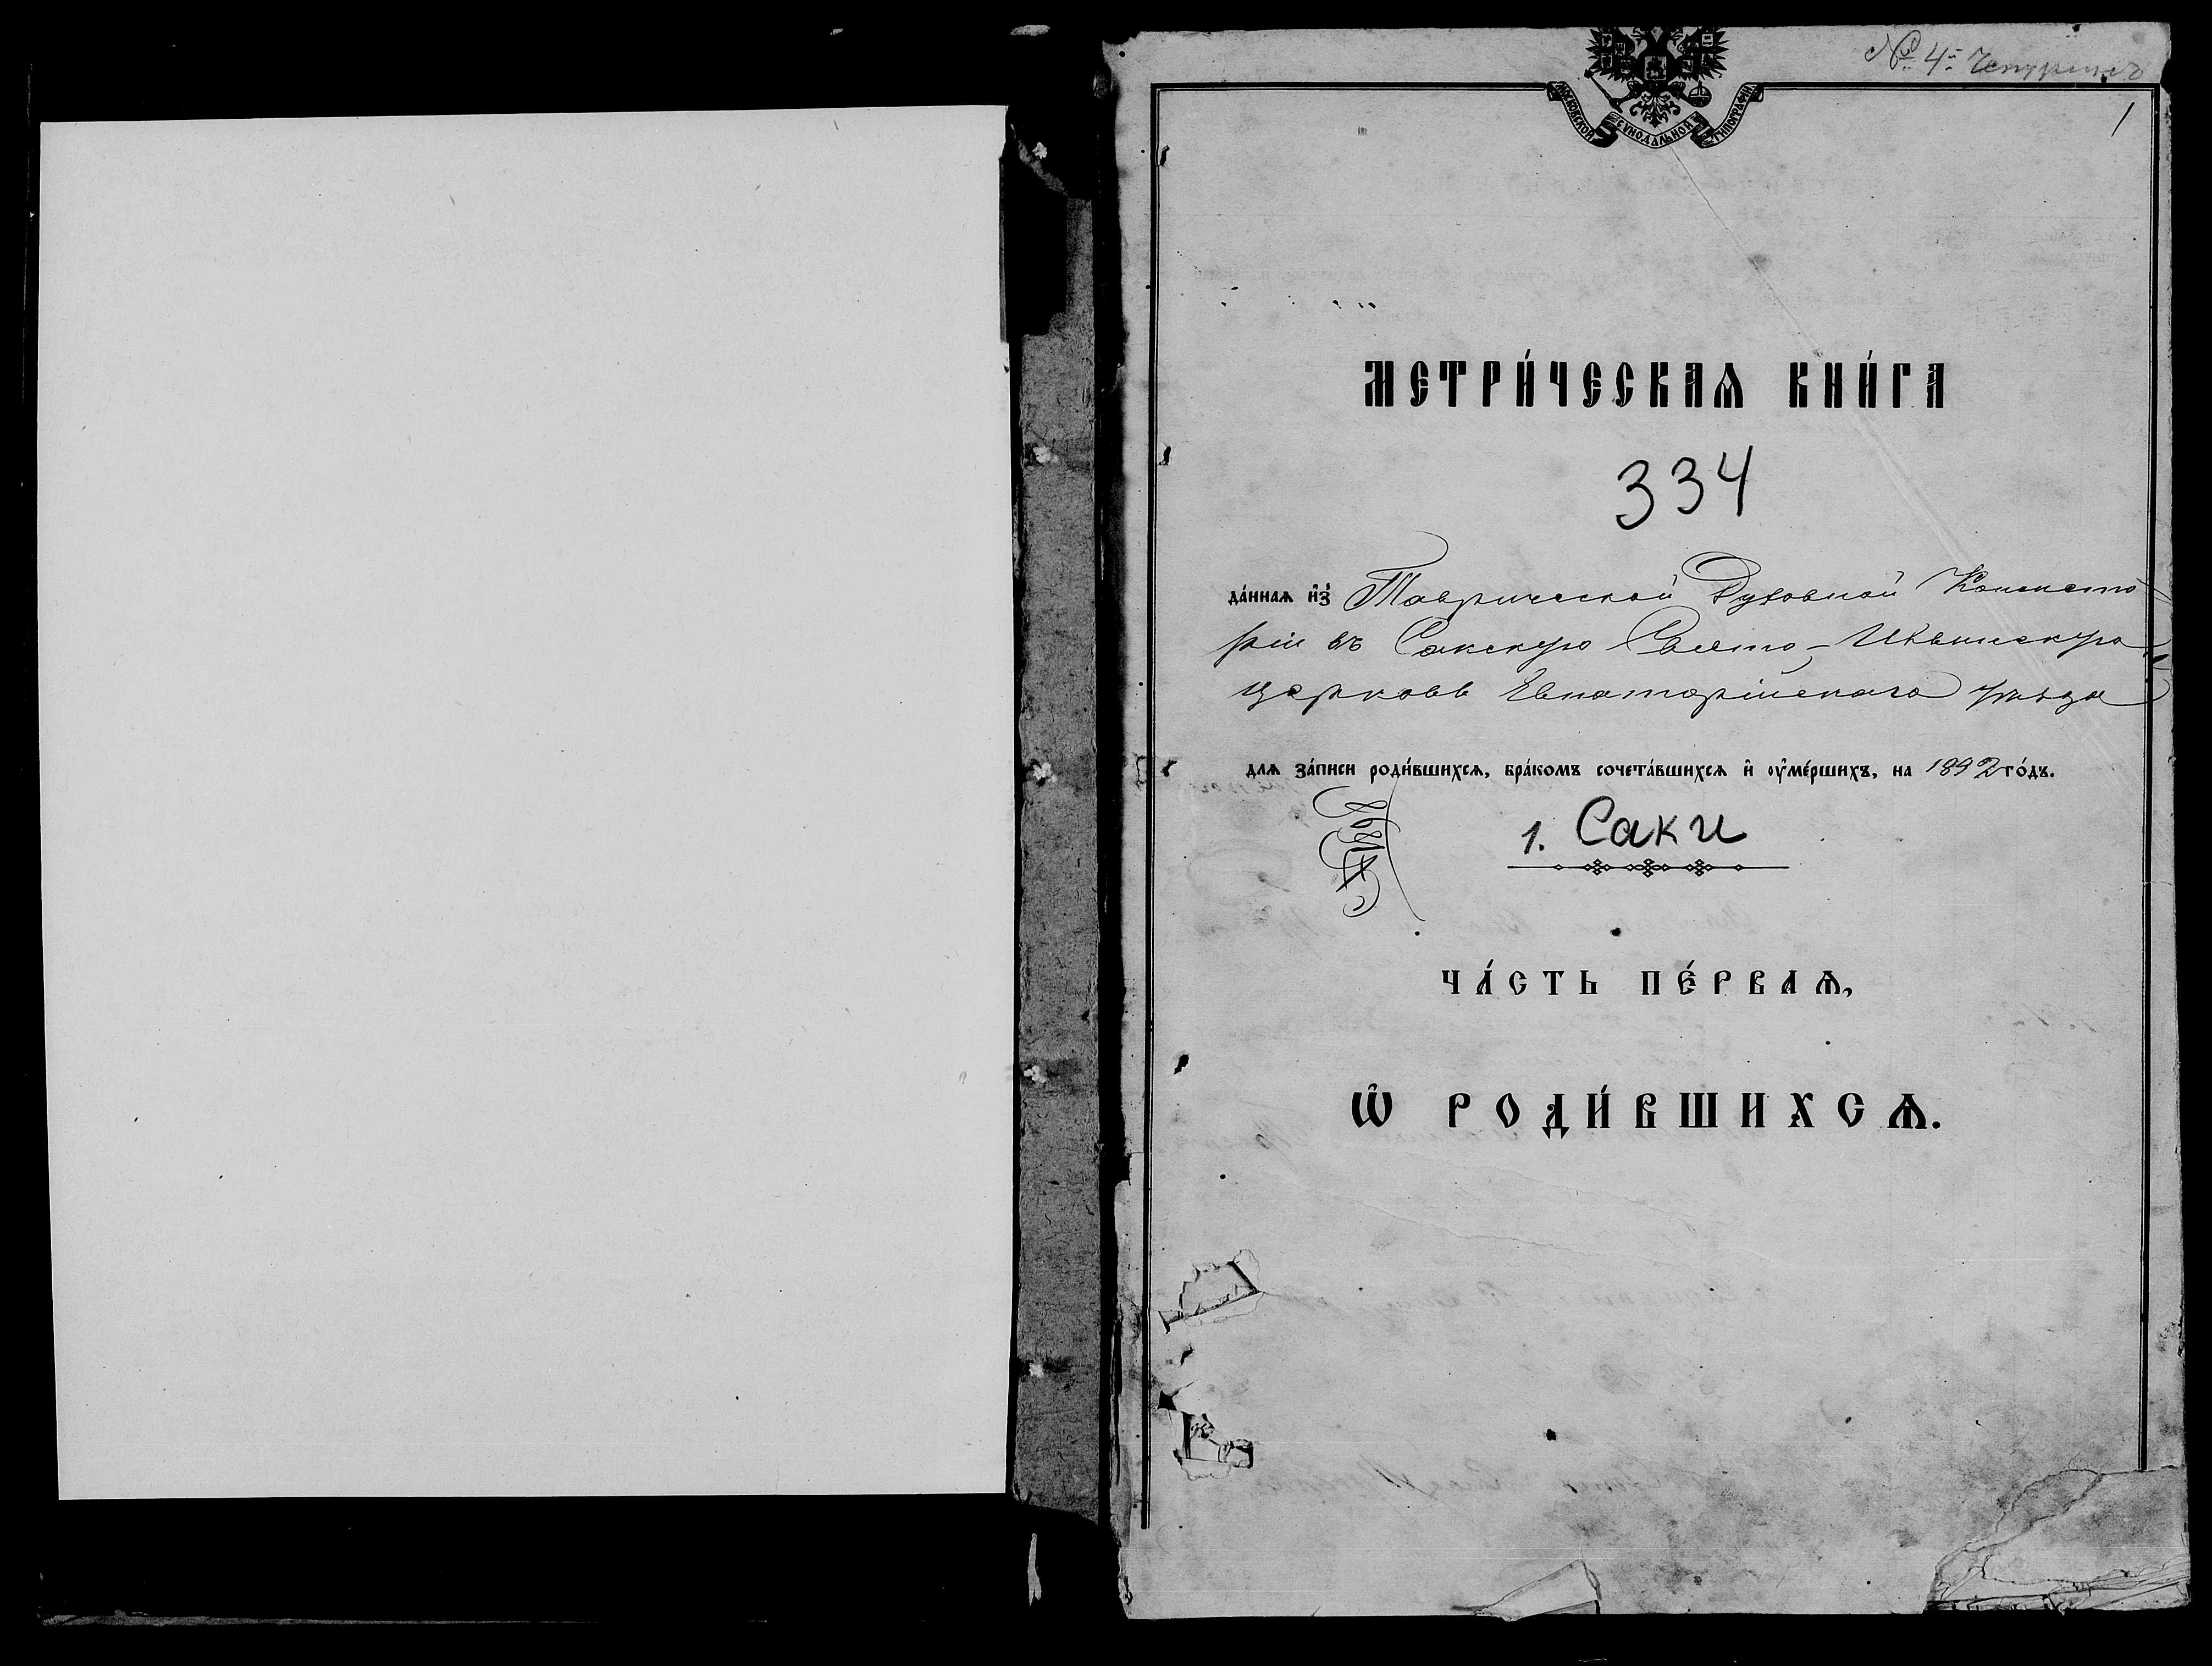 № 4й
1
МОСКОВСКОЙ СѴНОДАЛЬНОЙ ТИПОГРАФІИ
МЕТРИ́ЧЕСКАѦ КНИ́ГА
334
да́ннаѧ и҆з̾ Таврической Духовной Консисто
ріи въ Сакскую Свято-Ильинскую
церковь Евпаторійскаго уѣзда
длѧ за́писи роди́вшихсѧ, бра́комъ сочета́вшихсѧ и҆ ᲂу҆ме́ршихъ, на 1892 го́дъ.
1. Саки
ЧА́СТЬ ПЕ́РВАѦ,
Ѽ РОДИ́ВШИХСѦ.